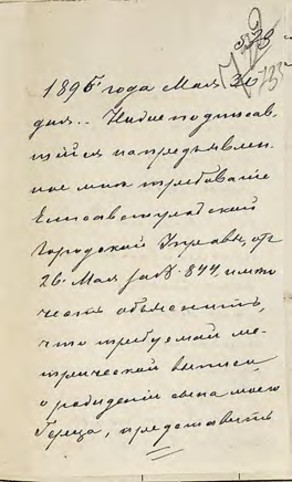 735
1895 года Мая 30
дня.. Нижеподписав-
шійся на предъявлен-
ное мнѣ требованіе
Елисаветградской
Городской Управы, отъ
26. Мая за № 844, имѣю
честь объяснить,
что требуемой ме-
трической выписи,
о рожденіи сына моего
Герца, представить